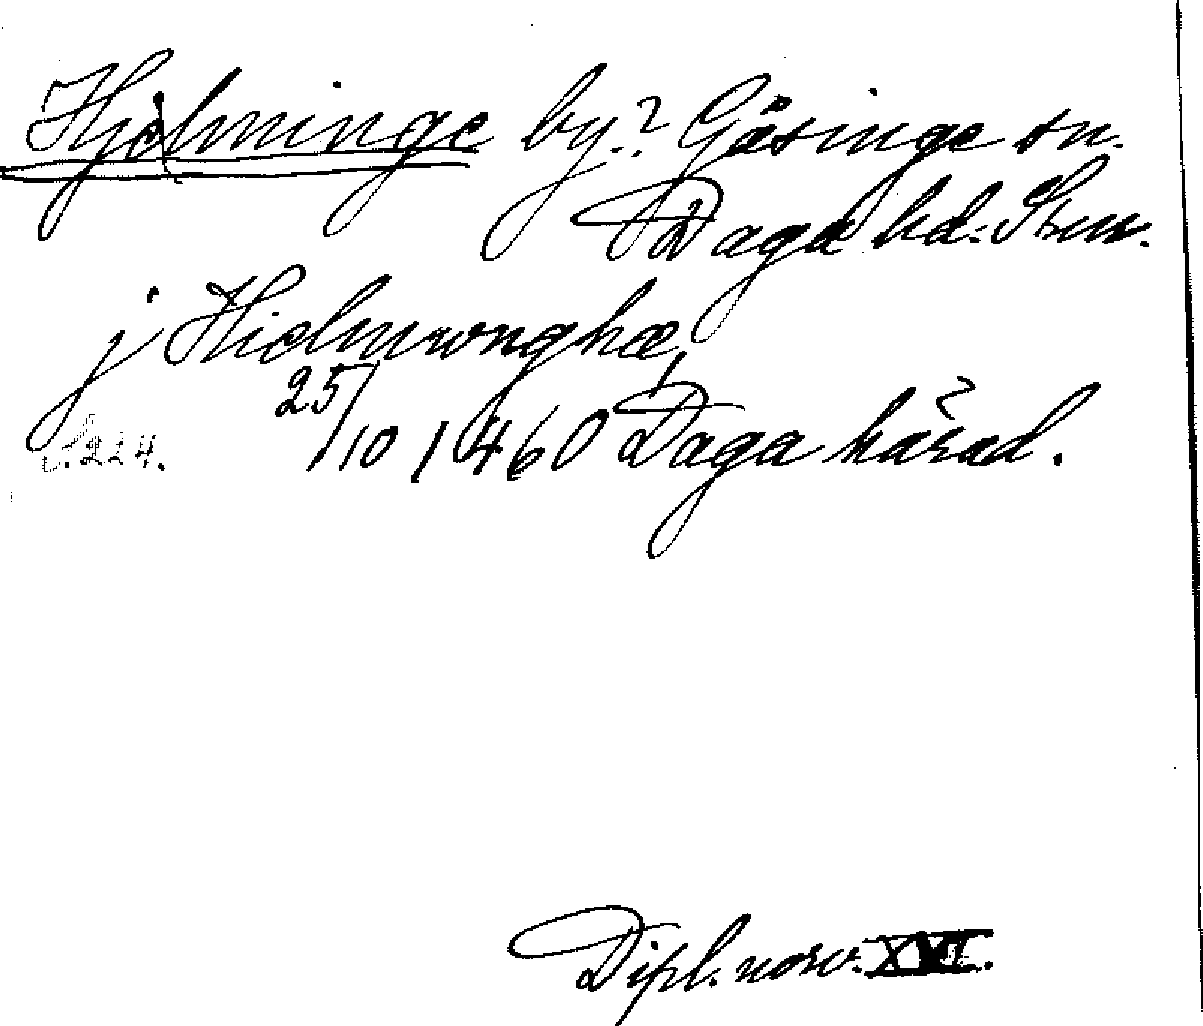 Hjelminge by? Gåsinge sn.
Daga hd. Söm.
j Hielmwnghæ,
25/10 1460 Daga härad.
s. 224.
Dipl. norv. XVI.